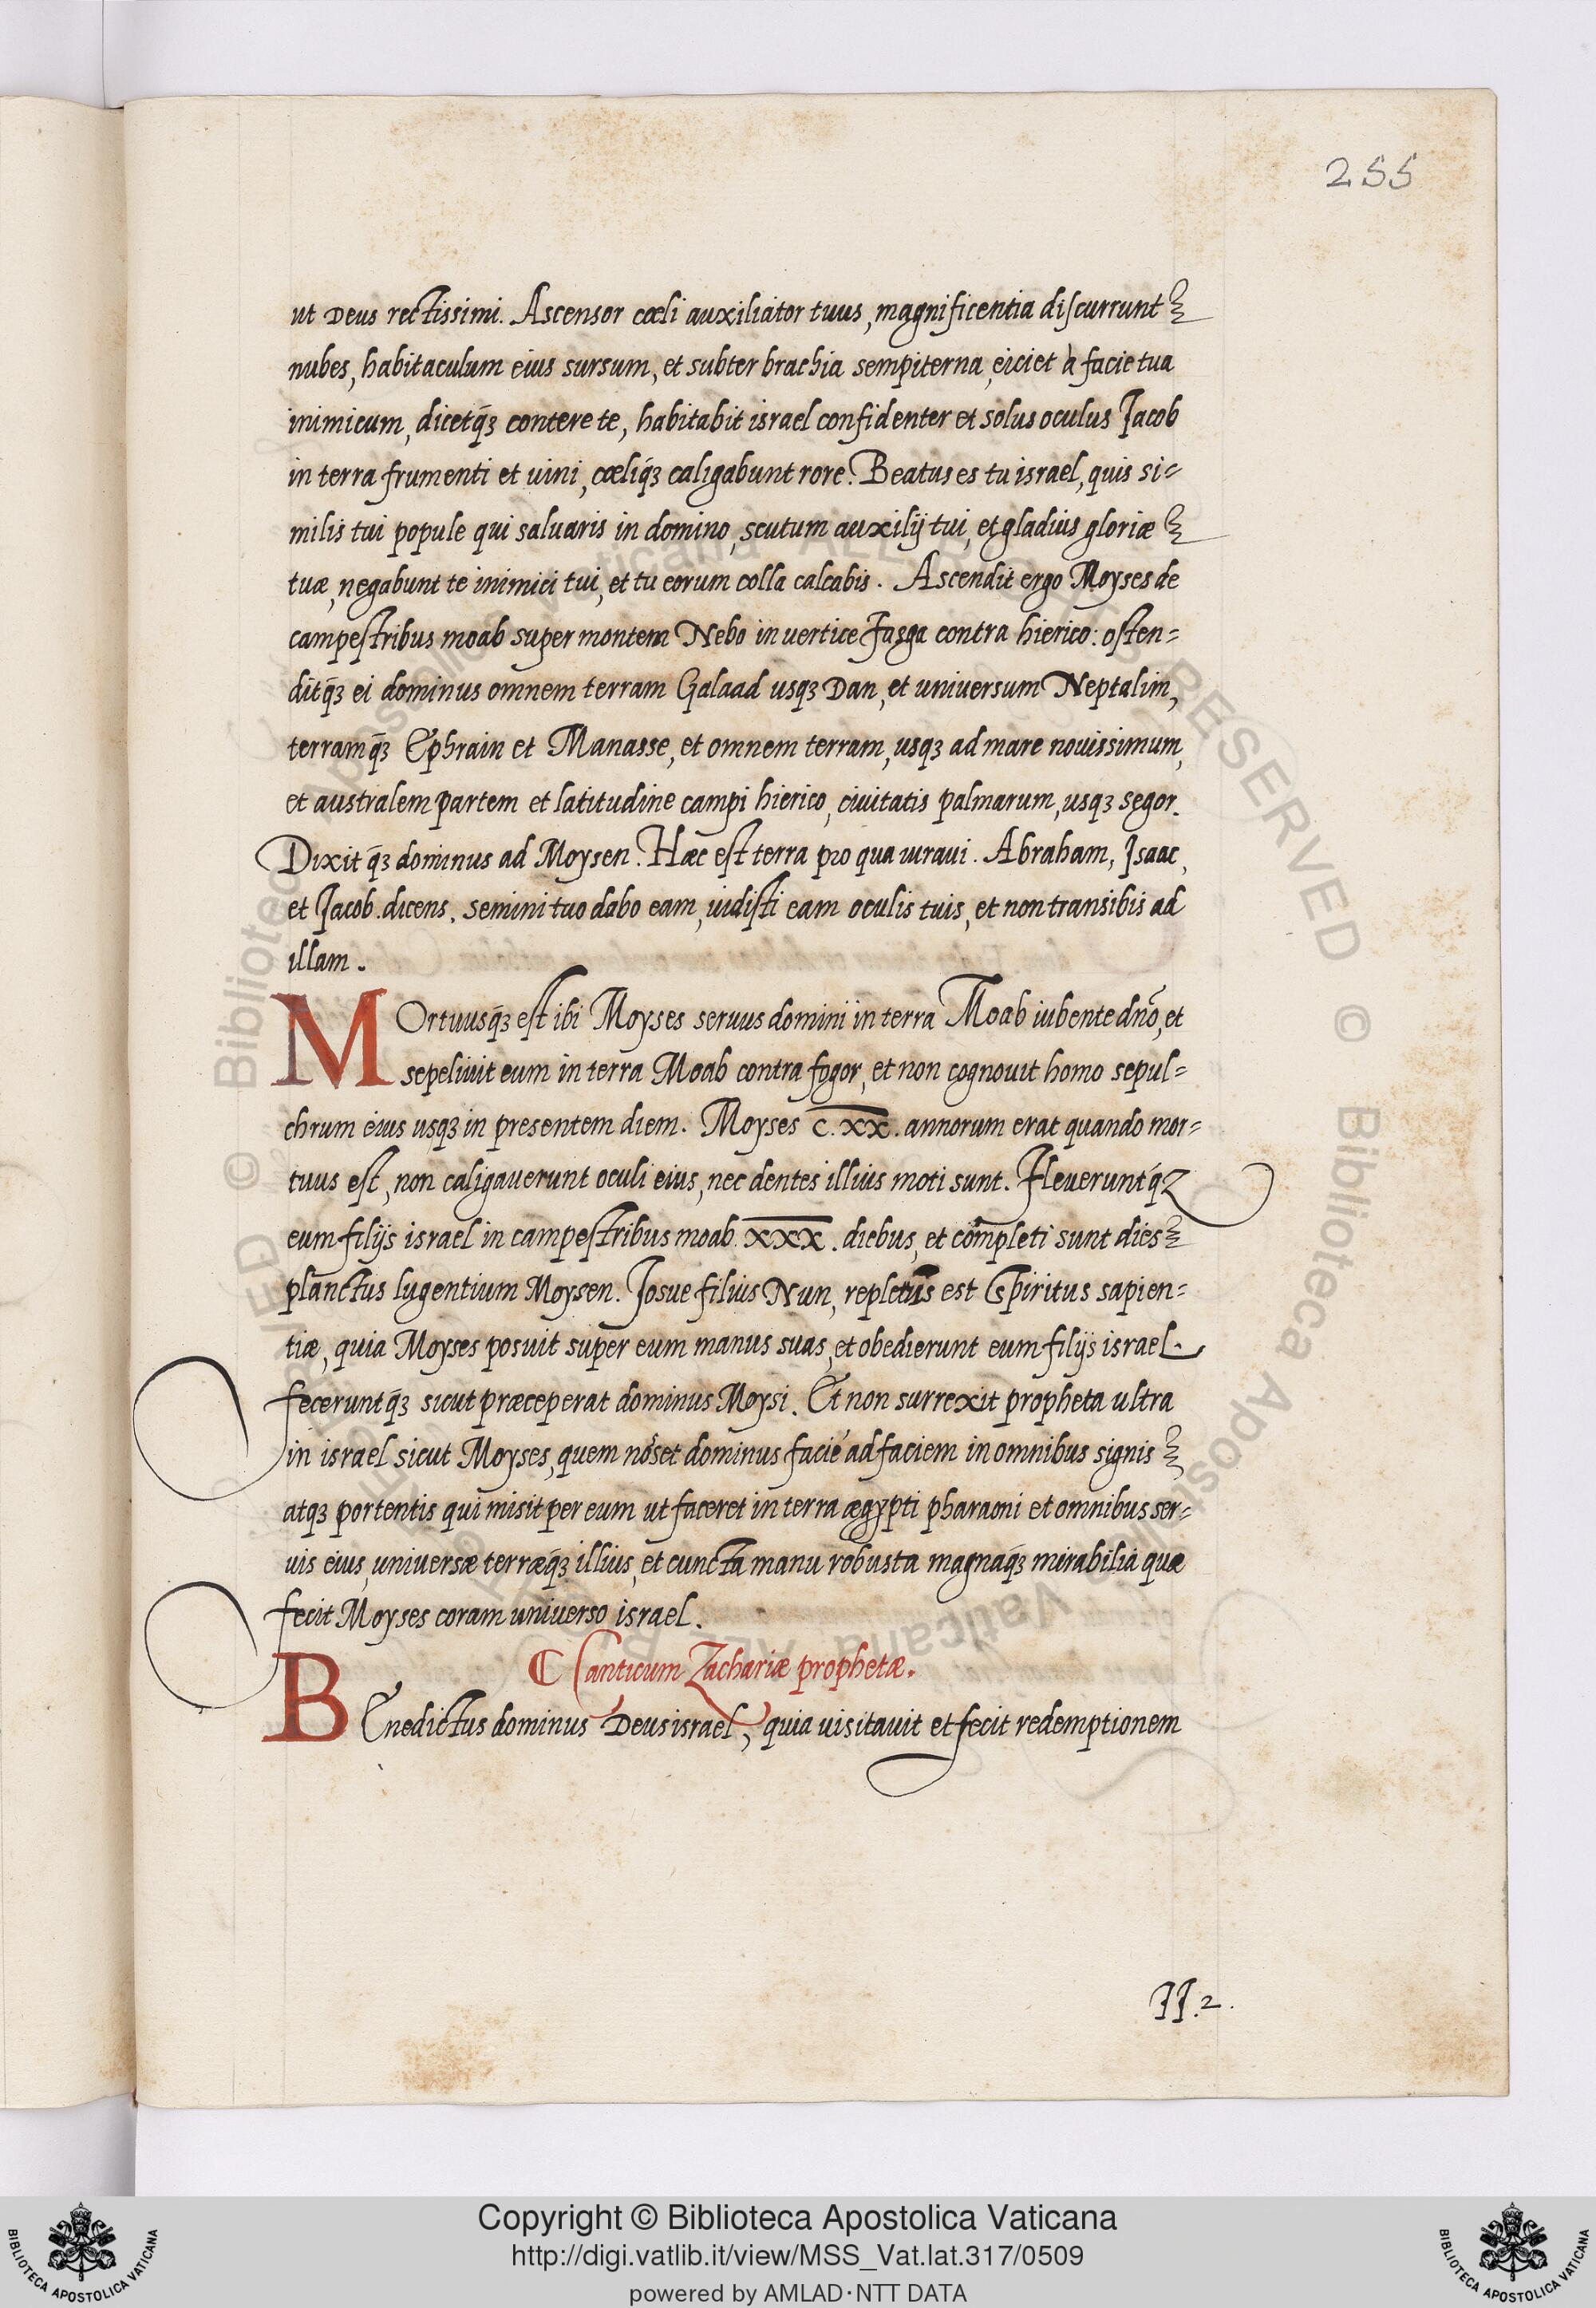 255
ut Deus rectissimi. Ascensor cœli auxiliator tuus, magnificentia discurrunt
nubes, habitaculum eius sursum, et subter brachia sempiterna, eiciet à facie tua
inimicum, dicetq́ꝫ contere te, habitabit israel confidenter et solus oculus Jacob
in terra frumenti et uini, cœliq́ꝫ caligabunt rore. Beatus es tu israel, quis si=
milis tui popule qui saluaris in domino, scutum auxilij tui, et gladius gloriæ
tuæ, negabunt te inimici tui, et tu eorum colla calcabis. Ascendit ergo Moyses de
campestribus moab super montem Nebo in uertice Fasga contra hierico: osten=
ditq́ꝫ ei dominus omnem terram Galaad usqꝫ Dan, et uniuersum Neptalim,
terramq́ꝫ Ephrain et Manasse, et omnem terram, usqꝫ ad mare nouissimum,
et australem partem et latitudine campi hierico, ciuitatis palmarum, usqꝫ segor.
Dixit q́ꝫ dominus ad Moysen. Hæc est terra pro qua iuraui. Abraham, Isaac,
et Jacob dicens. semini tuo dabo eam, uidisti eam oculis tuis, et non transibis ad
illam.
MOrtuusq́ꝫ est ibi Moyses seruus domini in terra Moab iubente dn̄o, et
sepeliuit eum in terra Moab contra fogor, et non cognouit homo sepul=
chrum eius usqꝫ in presentem diem. Moyses c.xx. annorum erat quando mor=
tuus est, non caligauerunt oculi eius, nec dentes illius moti sunt. Fleueruntq́ꝫ
eum filijs israel in campestribus moab. xxx. diebus, et completi sunt dies
planctus lugentium Moysen. Josue filius Nun, repletus est Spiritus sapien=
tiæ, quia Moyses posuit super eum manus suas, et obedierunt eum filijs israel.
feceruntq́ꝫ sicut præceperat dominus Moysi. Et non surrexit propheta ultra
in israel sicut Moyses, quem noset dominus facie ad faciem in omnibus signis
atqꝫ portentis qui misit per eum ut faceret in terra ægypti pharaoni et omnibus ser=
uis eius, uniuersæ terræq́ꝫ illius, et cuncta manu robusta magnaq́ꝫ mirabilia quæ
fecit Moyses coram uniuerso israel.
Canticum Zachariæ prophetæ.
BEnedictus dominus Deus israel, quia uisitauit et fecit redemptionem
II.2.
Copyright © Biblioteca Apostolica Vaticana
http://digi.vatlib.it/view/MSS_Vat.lat.317/0509
powered by AMLAD·NTT DATA